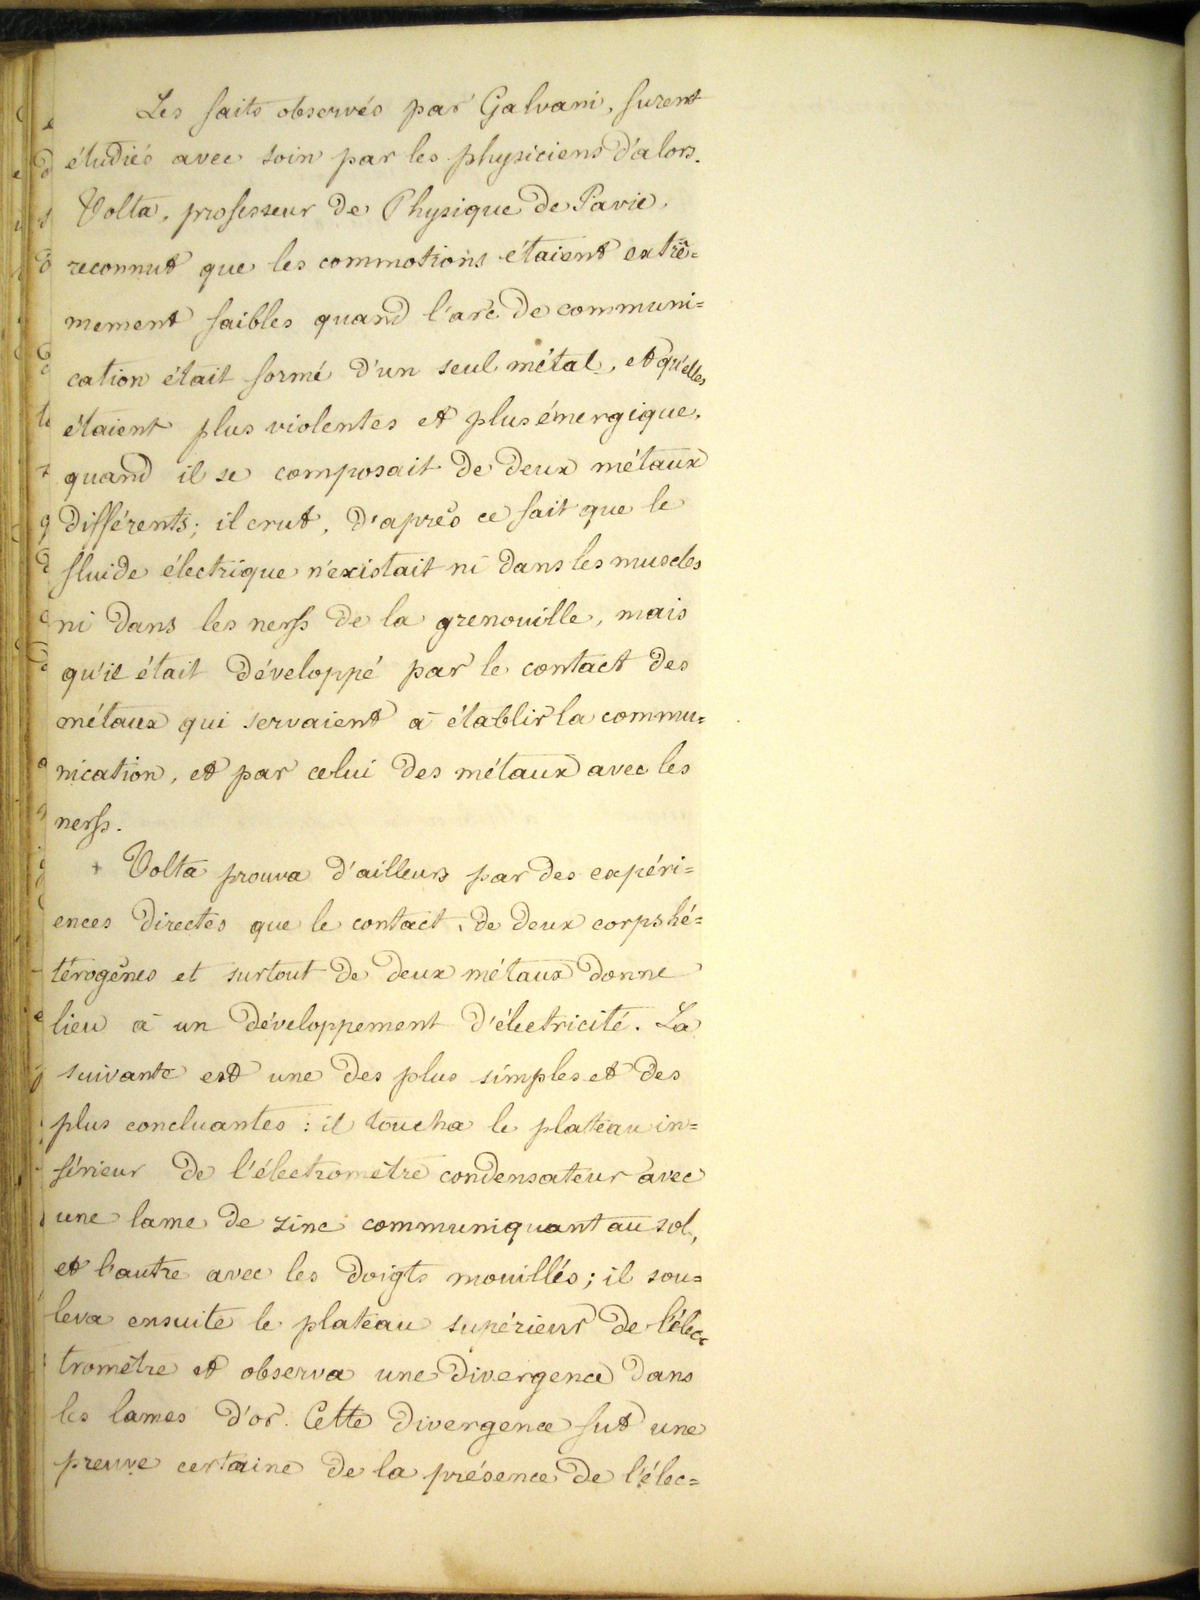 Les faits observés par Galvani, furent
étudiés avec soin par les physiciens d'alors.
Volta, professeur de Physique de Pavie,
reconnut que les commotions étaient extrê=
mement faibles quand l'arc de communi=
cation était formé d'un seul métal, et qu'elles
étaient plus violentes et plus énergique,
quand il se composait de deux métaux
différents; il crut, d'après ce fait que le
fluide électrique n'existait ni dans les muscles
ni dans les nerfs de la grenouille, mais
qu'il était développé par le contact des
métaux qui servaient à établir la commu=
nication, et par celui des métaux avec les
nerfs.
+ Volta prouva d'ailleurs par des expéri=
ences directes que le contact, de deux corps hé=
térogênes et surtout de deux métaux donne
lieu à un développement d'électricité. La
suivante est une des plus simples et des
plus concluantes : il toucha le plateau in=
férieur de l'électromètre condensateur avec
une lame de zinc communiquant au sol,
et l'autre avec les doigts mouillés; il sou=
leva ensuite le plateau supérieur de l'élec=
tromètre et observa une divergence dans
les lames d'or. Cette divergence fut une
preuve certaine de la présence de l'élec=